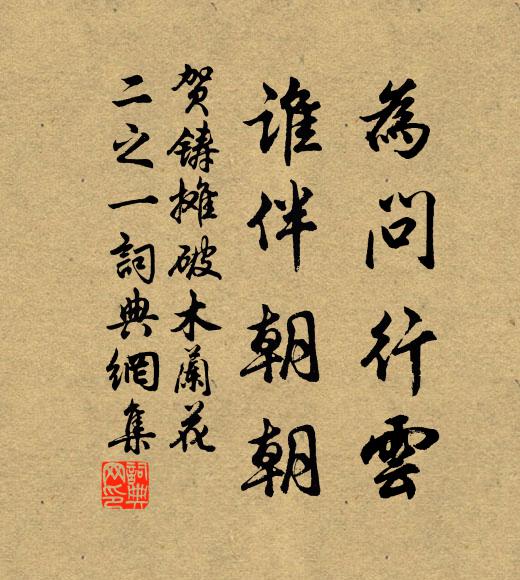 為問行雲
誰伴朝朝
贺鑄攤破木蘭花
二之一詞典網集
詞典
网印